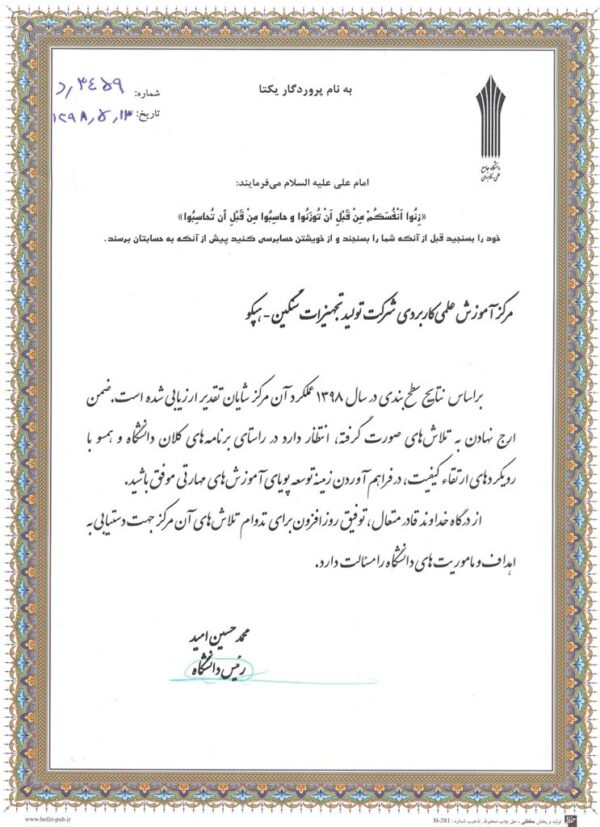 به نام پروردگار یکتا
شماره: ۳۴۵۹/د
تاریخ: ۱۳۹۸/۵/۱۳
دانشگاه جامع
علمی کاربردی
امام علی علیه السلام می‌فرمایند:
«زِنُوا اَنْفُسَکُمْ مِنْ قَبْلِ اَنْ تُوزَنُوا و حاسِبُوا مِنْ قَبْلِ اَن تُحاسَبُوا»
خود را بسنجید قبل از آنکه شما را بسنجند و از خویشتن حسابرسی کنید پیش از آنکه به حسابتان برسند.
مرکز آموزش علمی کاربردی شرکت تولید تجهیزات سنگین - هپکو
براساس نتایج سطح بندی در سال ۱۳۹۸ عملکرد آن مرکز شایان تقدیر ارزیابی شده است. ضمن
ارج نهادن به تلاش‌های صورت گرفته، انتظار دارد در راستای برنامه‌های کلان دانشگاه و همسو با
رویکردهای ارتقاء کیفیت، در فراهم آوردن زمینه توسعه پویای آموزش‌های مهارتی موفق باشید.
از درگاه خداوند قادر متعال، توفیق روزافزون برای تداوم تلاش‌های آن مرکز جهت دستیابی به
اهداف و ماموریت‌های دانشگاه را مسئالت دارد.
محمد حسین امید
رئیس دانشگاه
تولید و پخش حفاظی - حق چاپ محفوظ. تذهیب شماره: H-281